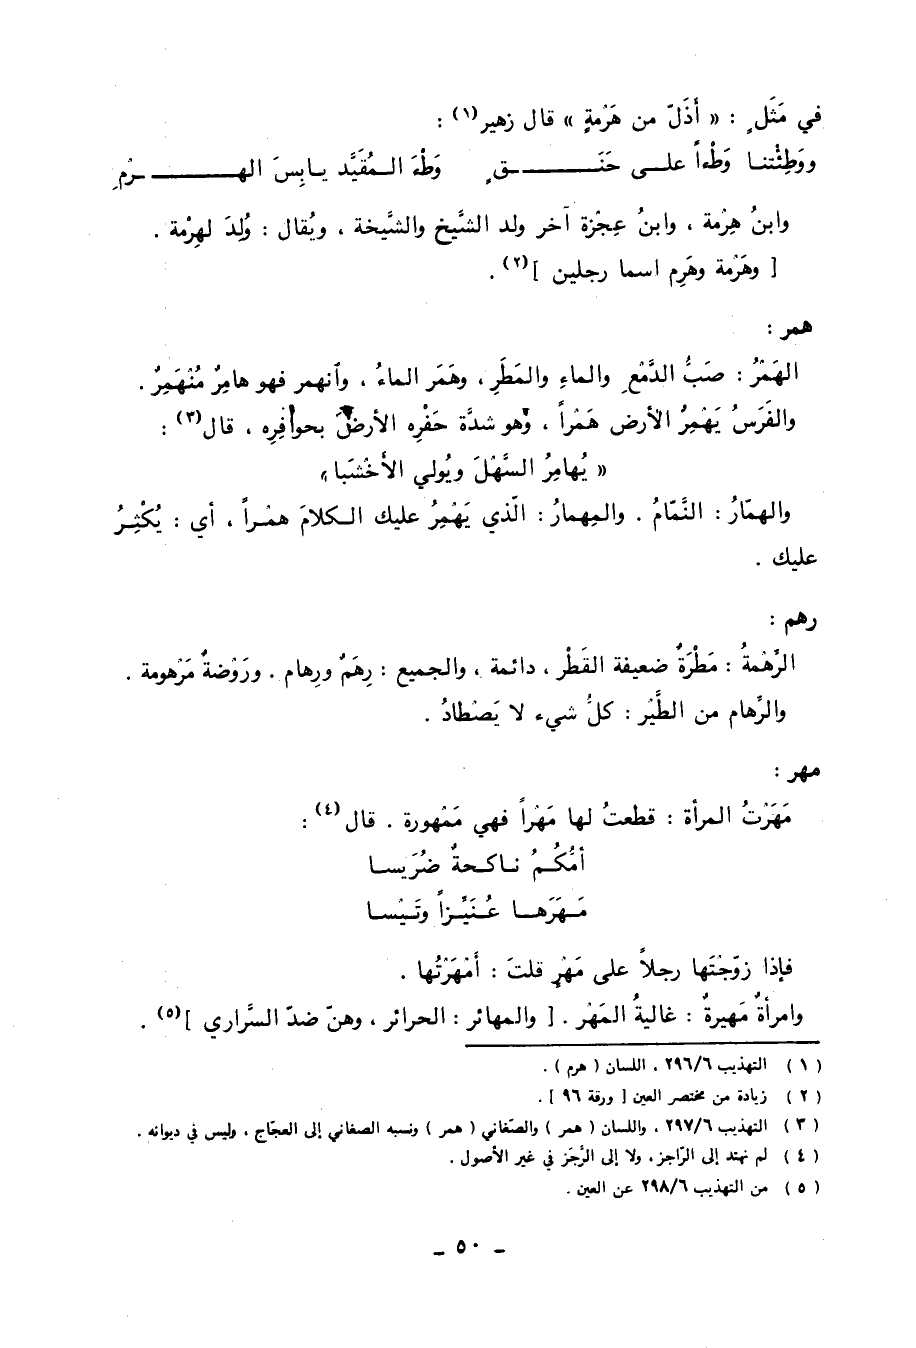 في مَثَلٍ : « أَذَلّ من هَرْمةٍ » قال زهير(١) :
ووَطِئْتنا وَطْءاً على حَنَقٍ وَطْءَ المُقَيَّد يابِسَ الهَرْمِ
وابنُ هِرْمة ، وابنُ عِجْزة آخر ولد الشَّيخ والشَّيخة ، ويُقال : وُلِدَ لهِرْمة .
[ وهَرْمة وهَرِم اسما رجلين ](٢) .
همر :
الهَمْرُ : صَبُّ الدَّمْعِ والماءِ والمَطَرِ ، وهَمَر الماءُ ، وآنهمر فهو هامِرٌ مُنْهَمِرٌ .
والفَرَسُ يَهْمِرُ الأرض هَمْراً ، وهو شدَّة حَفْرِه الأرضَ بحوافِرِه ، قال(٣) :
« يُهامِرُ السَّهْلَ ويُولي الأَخْشَبا »
والهمّارُ : النَّمّامُ . والمِهمارُ : الّذي يَهْمِرُ عليك الكلامَ همْراً ، أي : يُكْثِرُ
عليك .
رهم :
الرِّهْمةُ : مَطْرَةٌ ضعيفة القَطْر ، دائمة ، والجميع : رِهَمٌ ورِهام . ورَوْضةٌ مَرْهومة .
والرِّهام من الطَّيْر : كلُّ شيء لا يَصْطادُ .
مهر :
مَهَرْتُ المرأة : قطعتُ لها مَهْراً فهي مَمْهورة . قال(٤) :
أمُّكُمُ ناكحةٌ ضُرَيسا
مَهَرَها عُنَيِّزاً وتَيْسا
فإذا زوّجْتَها رجلاً على مَهْرٍ قلتَ : أَمْهَرْتُها .
وامرأةٌ مَهيرةٌ : غاليةُ المَهْر . [ والمهائر : الحرائر ، وهنّ ضدّ السَّراري ](٥) .
( ١ ) التهذيب ٢٩٦/٦ ، اللسان ( هرم ) .
( ٢ ) زيادة من مختصر العين [ ورقة ٩٦ ] .
( ٣ ) التهذيب ٢٩٧/٦ ، واللسان ( همر ) والصّغاني ( همر ) ونسبه الصغاني إلى العجّاج ، وليس في ديوانه .
( ٤ ) لم نهتد إلى الرّاجز ، ولا إلى الرّجَز في غير الأصول .
( ٥ ) من التهذيب ٢٩٨/٦ عن العين .
ـ ٥٠ ـ